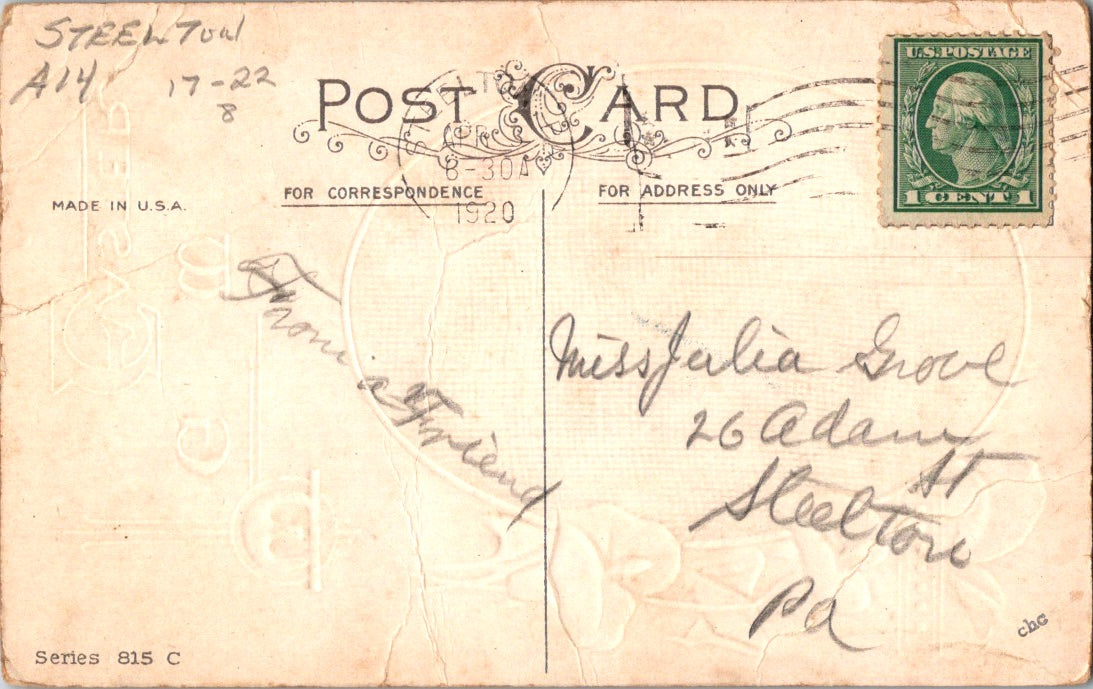 STEELTON
A14 17-22
8
POST CARD
STEELTON
APR
8-30A
1920
U.S. POSTAGE
1 CENT 1
FOR CORRESPONDENCE
FOR ADDRESS ONLY
MADE IN U.S.A.
From a Friend
Miss Julia Grove
26 Adam
St
Steelton
Pa
chc
Series 815 C